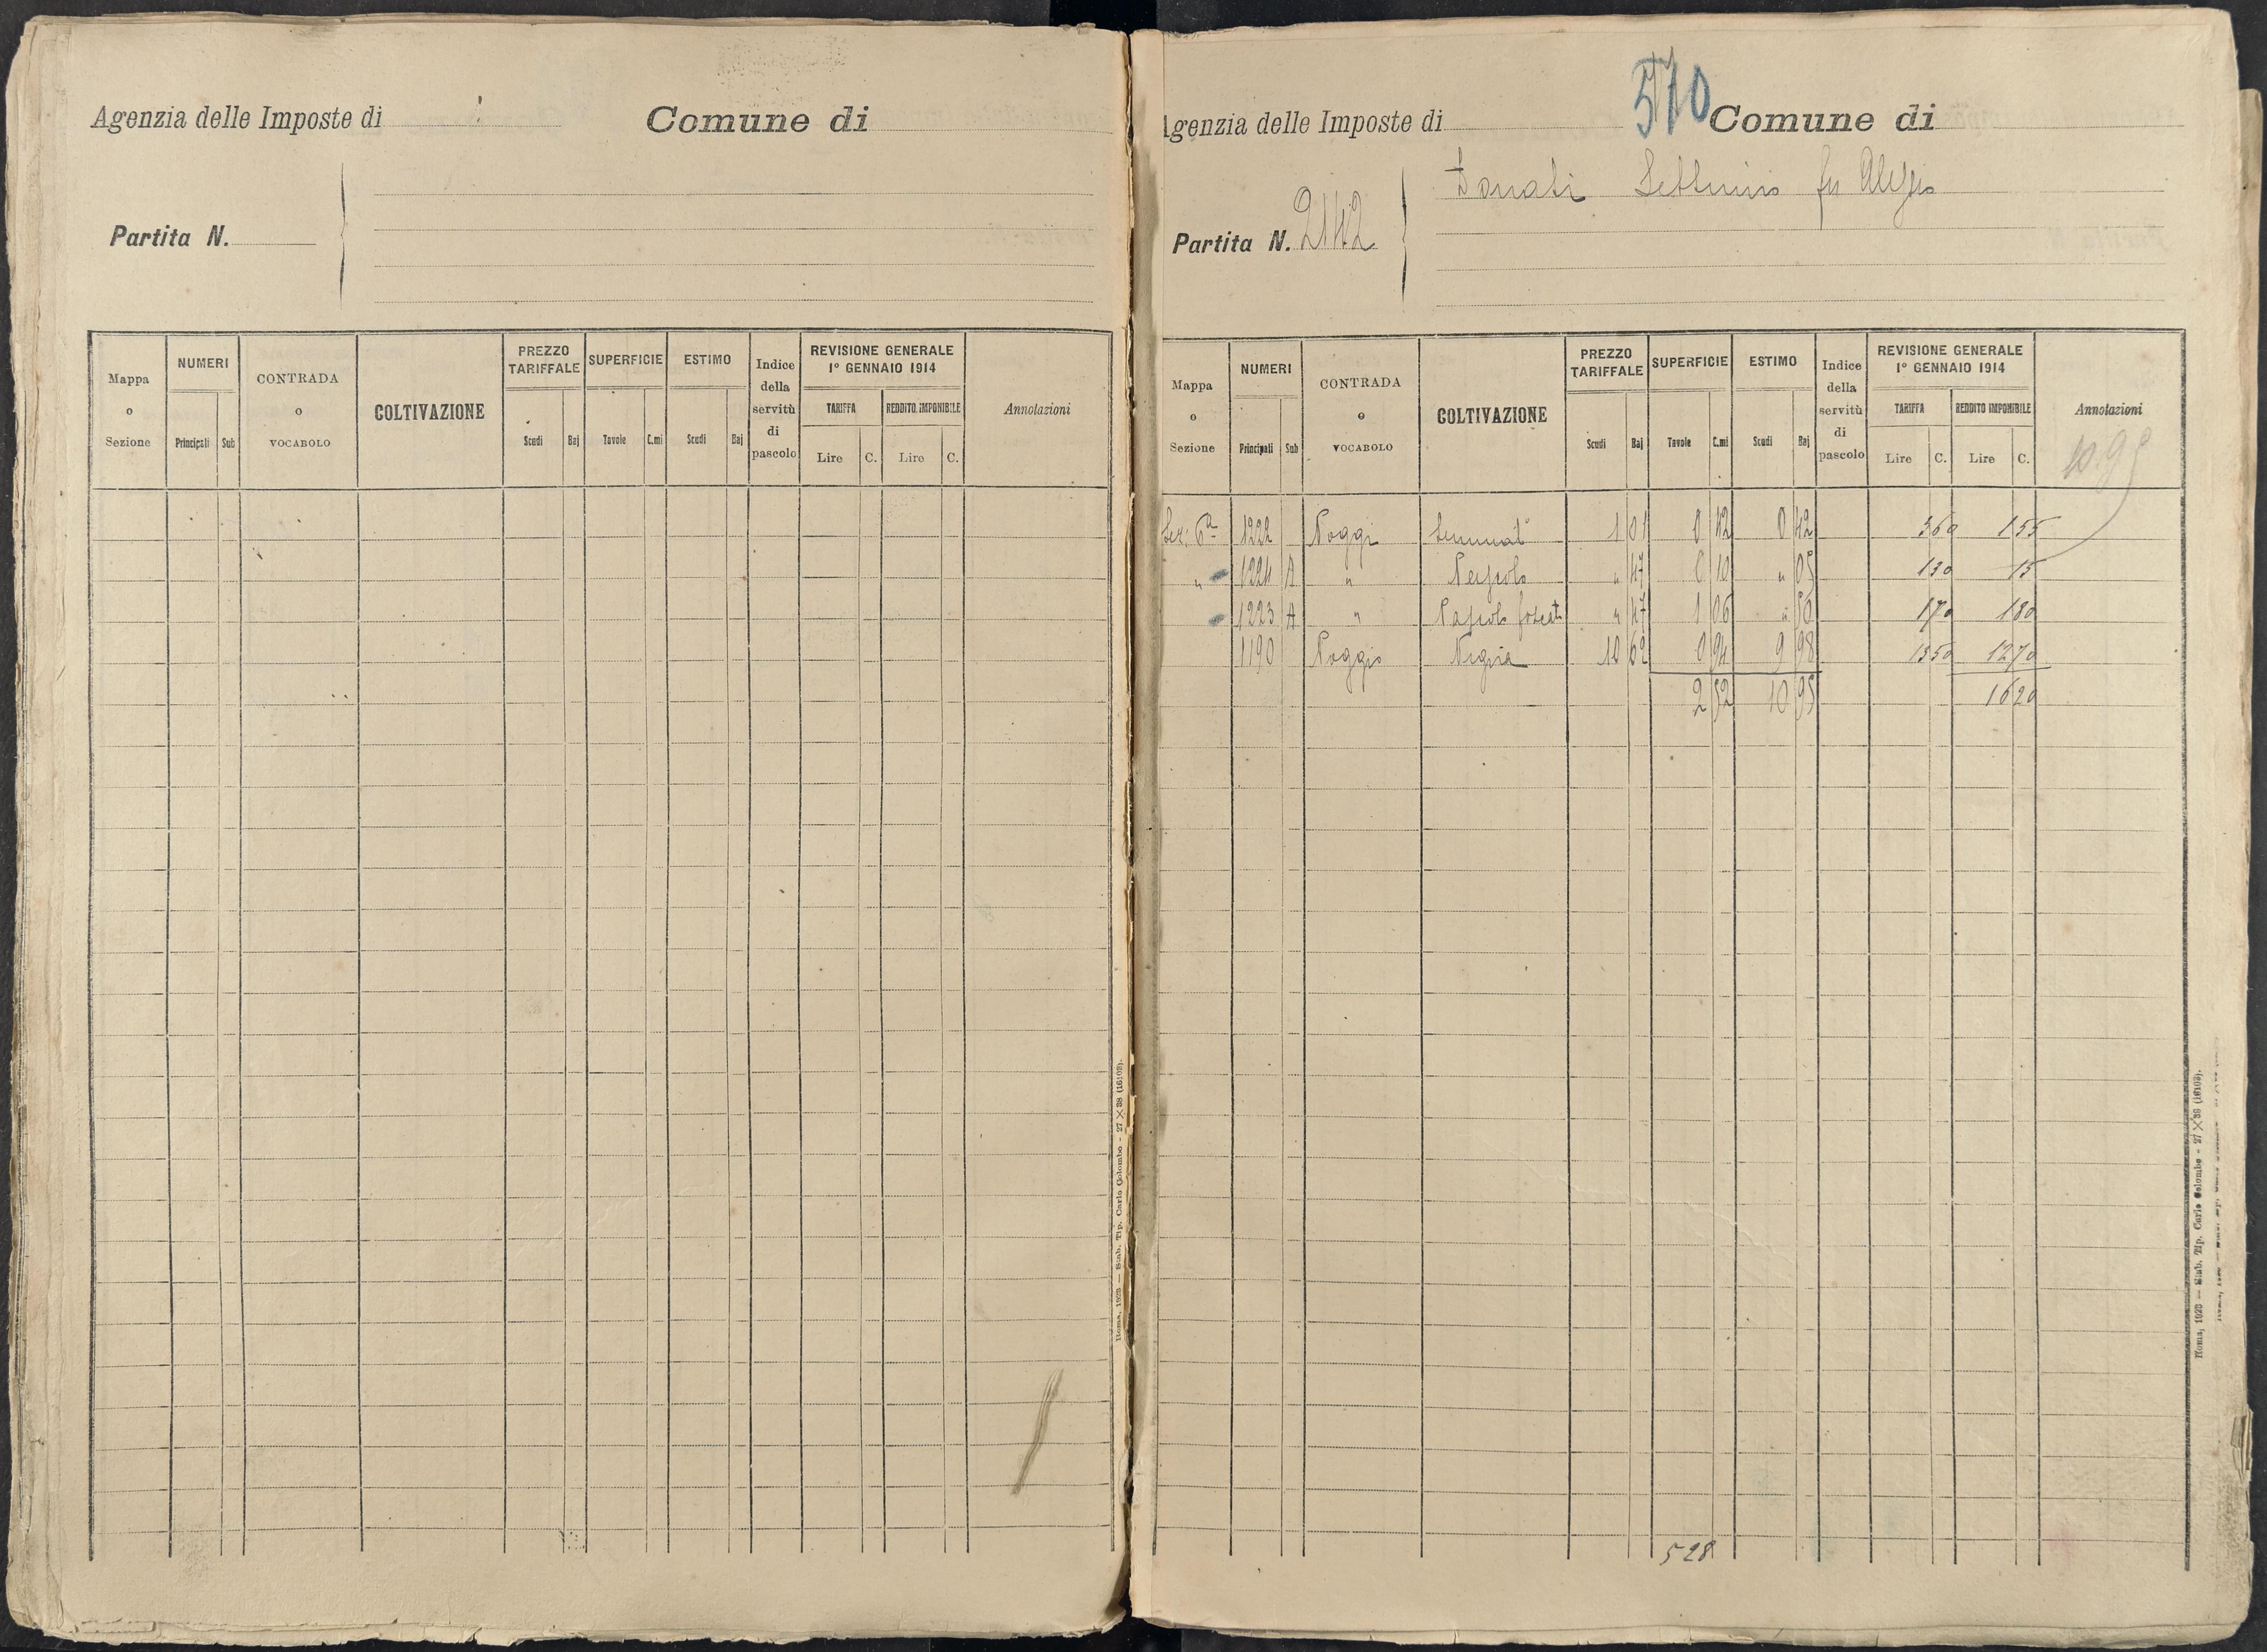 Agenzia delle Imposte di Comune di
Partita N.
Mappa o Sezione NUMERI Principali Sub CONTRADA o VOCABOLO COLTIVAZIONE PREZZO TARIFFALE Scudi Baj SUPERFICIE Tavole C.mi ESTIMO Scudi Baj Indice della servitù di pascolo REVISIONE GENERALE 1° GENNAIO 1914 TARIFFA Lire C. REDDITO IMPONIBILE Lire C. Annotazioni
Roma, 1923 — Stab. Tip. Carlo Colombo - 27 × 38 (16102).
570
Agenzia delle Imposte di Comune di
Donati Settimio fu
Partita N. 2142
Mappa o Sezione NUMERI Principali Sub CONTRADA o VOCABOLO COLTIVAZIONE PREZZO TARIFFALE Scudi Baj SUPERFICIE Tavole C.mi ESTIMO Scudi Baj Indice della servitù di pascolo REVISIONE GENERALE 1° GENNAIO 1914 TARIFFA Lire C. REDDITO IMPONIBILE Lire C. Annotazioni
10.95
Sez: 6a 1222 Poggi 1 01 0 42 0 42 360 155
" 1224 A " " 47 0 10 " 05 130 15
1223 A " " 47 1 06 " 50 170 180
1190 Poggio 10 62 0 94 9 98 1350 1270
2 52 10 95 1620
528
Roma, 1923 — Stab. Tip. Carlo Colombo - 27 × 38 (16102).